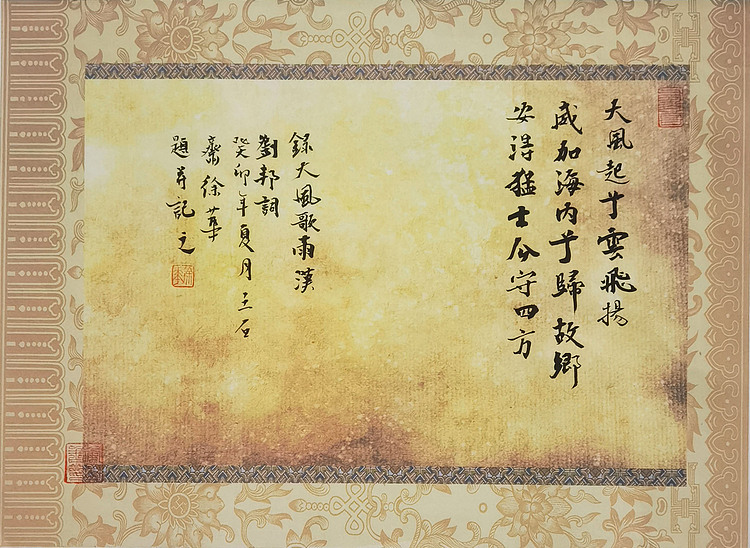 大風起兮雲飛揚
威加海內兮歸故鄉
安得猛士兮守四方
錄大風歌兩漢
劉邦詞
癸卯年夏月玉石
齋徐華
題并記之